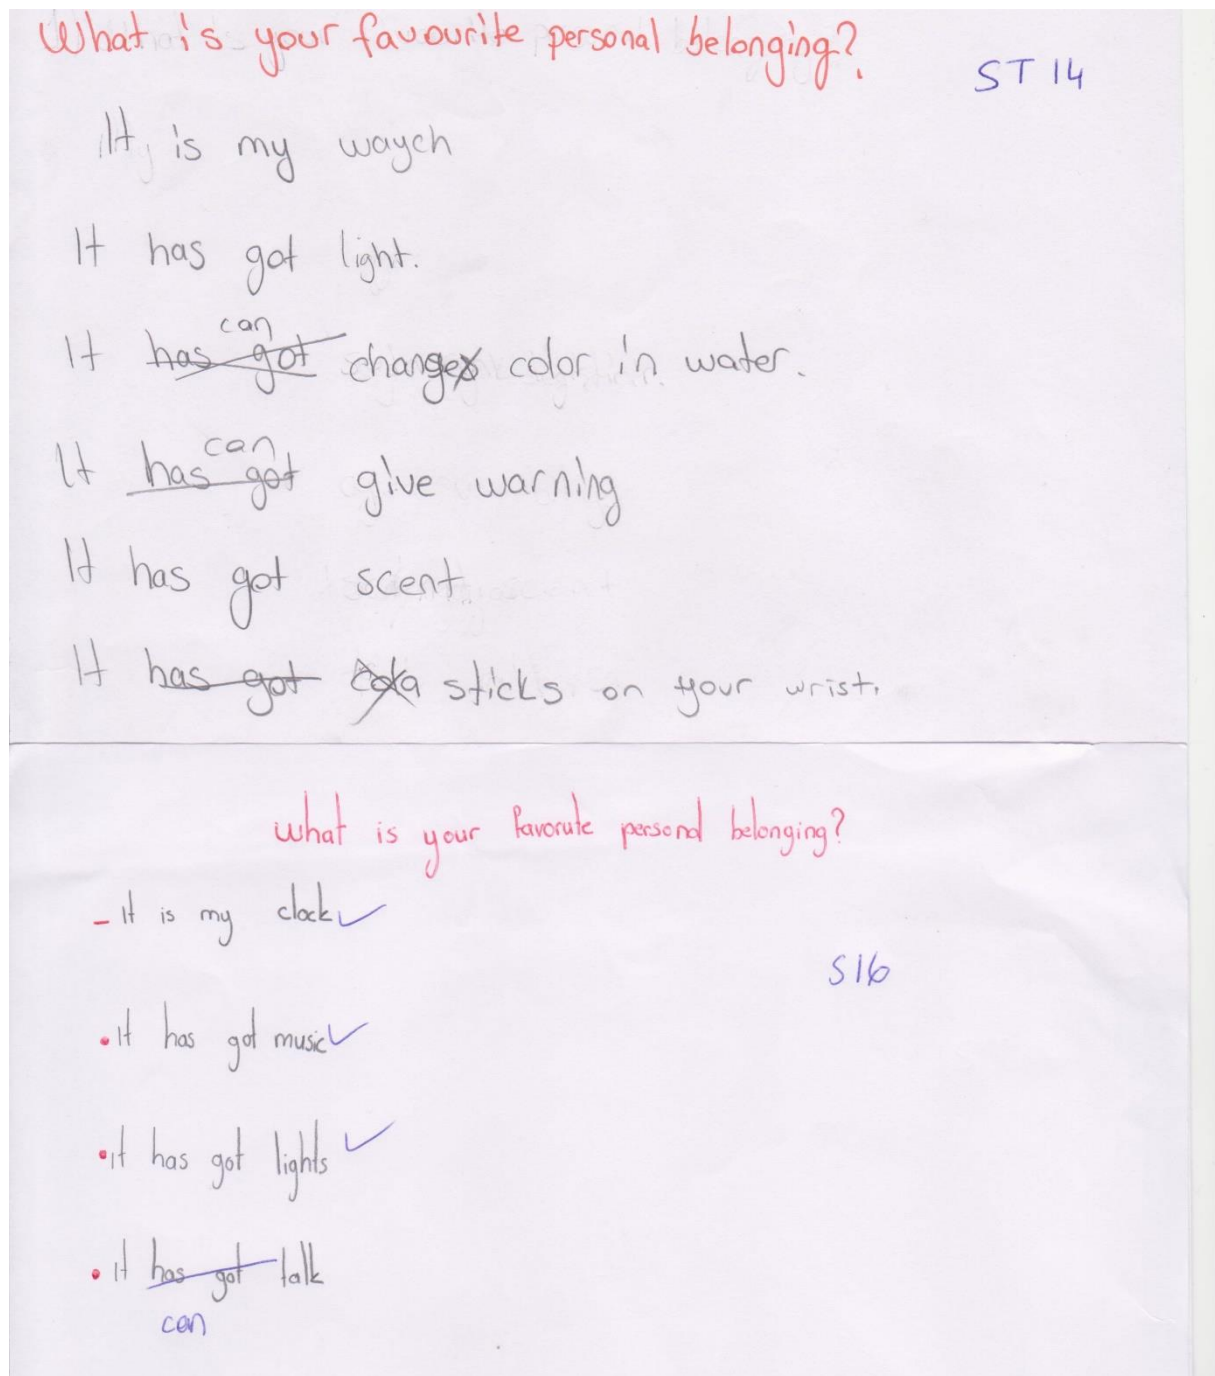 What is your favourite personal belonging?
ST 14
It is my waych
It has got light.
can
It has got change color in water.
can
It has got give warning
It has got scent.
It has got sticks on your wrist.
What is your favorute personal belonging?
- It is my clock
S16
• It has got music
• it has got lights
• it has got talk
can